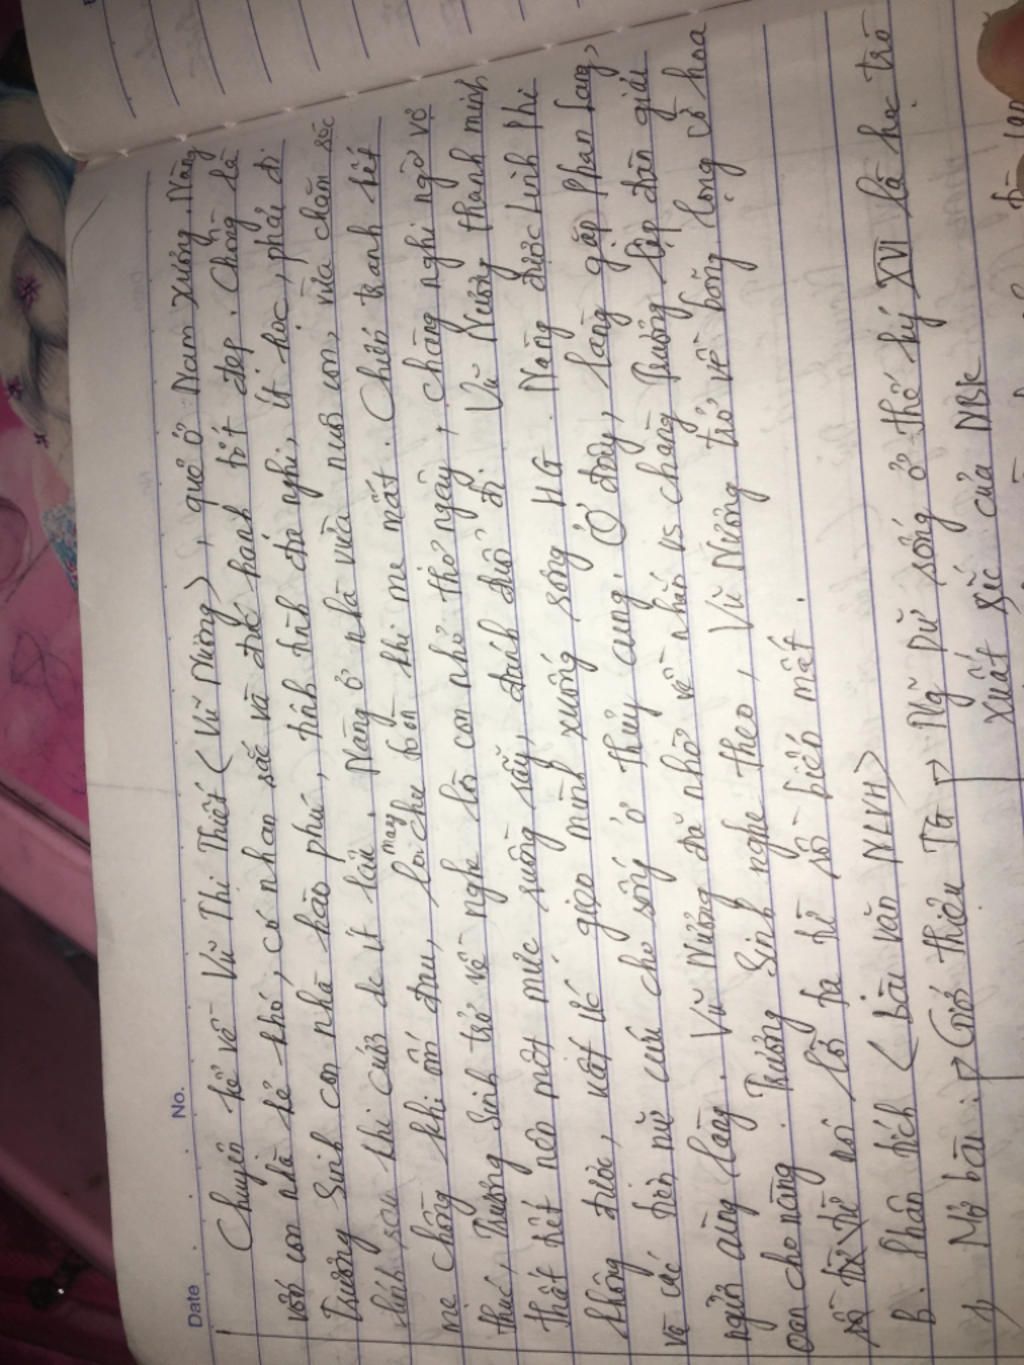 Date No.
Chuyện kể về Vũ Thị Thiết (Vũ Nương), quê ở Nam Xương. Nàng
vốn con nhà kẻ khó, có nhan sắc và đức hạnh tốt đẹp. Chồng là
Trương Sinh con nhà hào phú, tính tình đa nghi, ít học, phải đi
lính sau khi cưới đc ít lâu. Nàng ở nhà vừa nuôi con, vừa chăm sóc
mẹ chồng khi ốm đau, lo may chu toàn khi mẹ mất. Chiến tranh kết
thúc, Trương Sinh trở về nghe lời con nhỏ thơ ngây, chàng nghi ngờ vợ
thất tiết nên một mực ruồng rẫy, đánh đuổi đi. Vũ Nương thanh minh
không được, uất ức gieo mình xuống sông HG. Nàng được Linh Phi
và các tiên nữ cứu cho sống ở thủy cung. Ở đây, nàng gặp Phan Lang,
người cùng làng. Vũ Nương đã nhờ về nhắn vs chàng Trương lập đàn giải
oan cho nàng. Trương Sinh nghe theo, Vũ Nương trở về bồng lọng cờ hoa
rồi nói lời tạ từ rồi biến mất.
B. Phân tích (bài văn NLVH)
1, Mở bài: → Giới thiệu TG → Ng Dữ sống ở thế kỷ XVI là học trò
xuất sắc của NBK